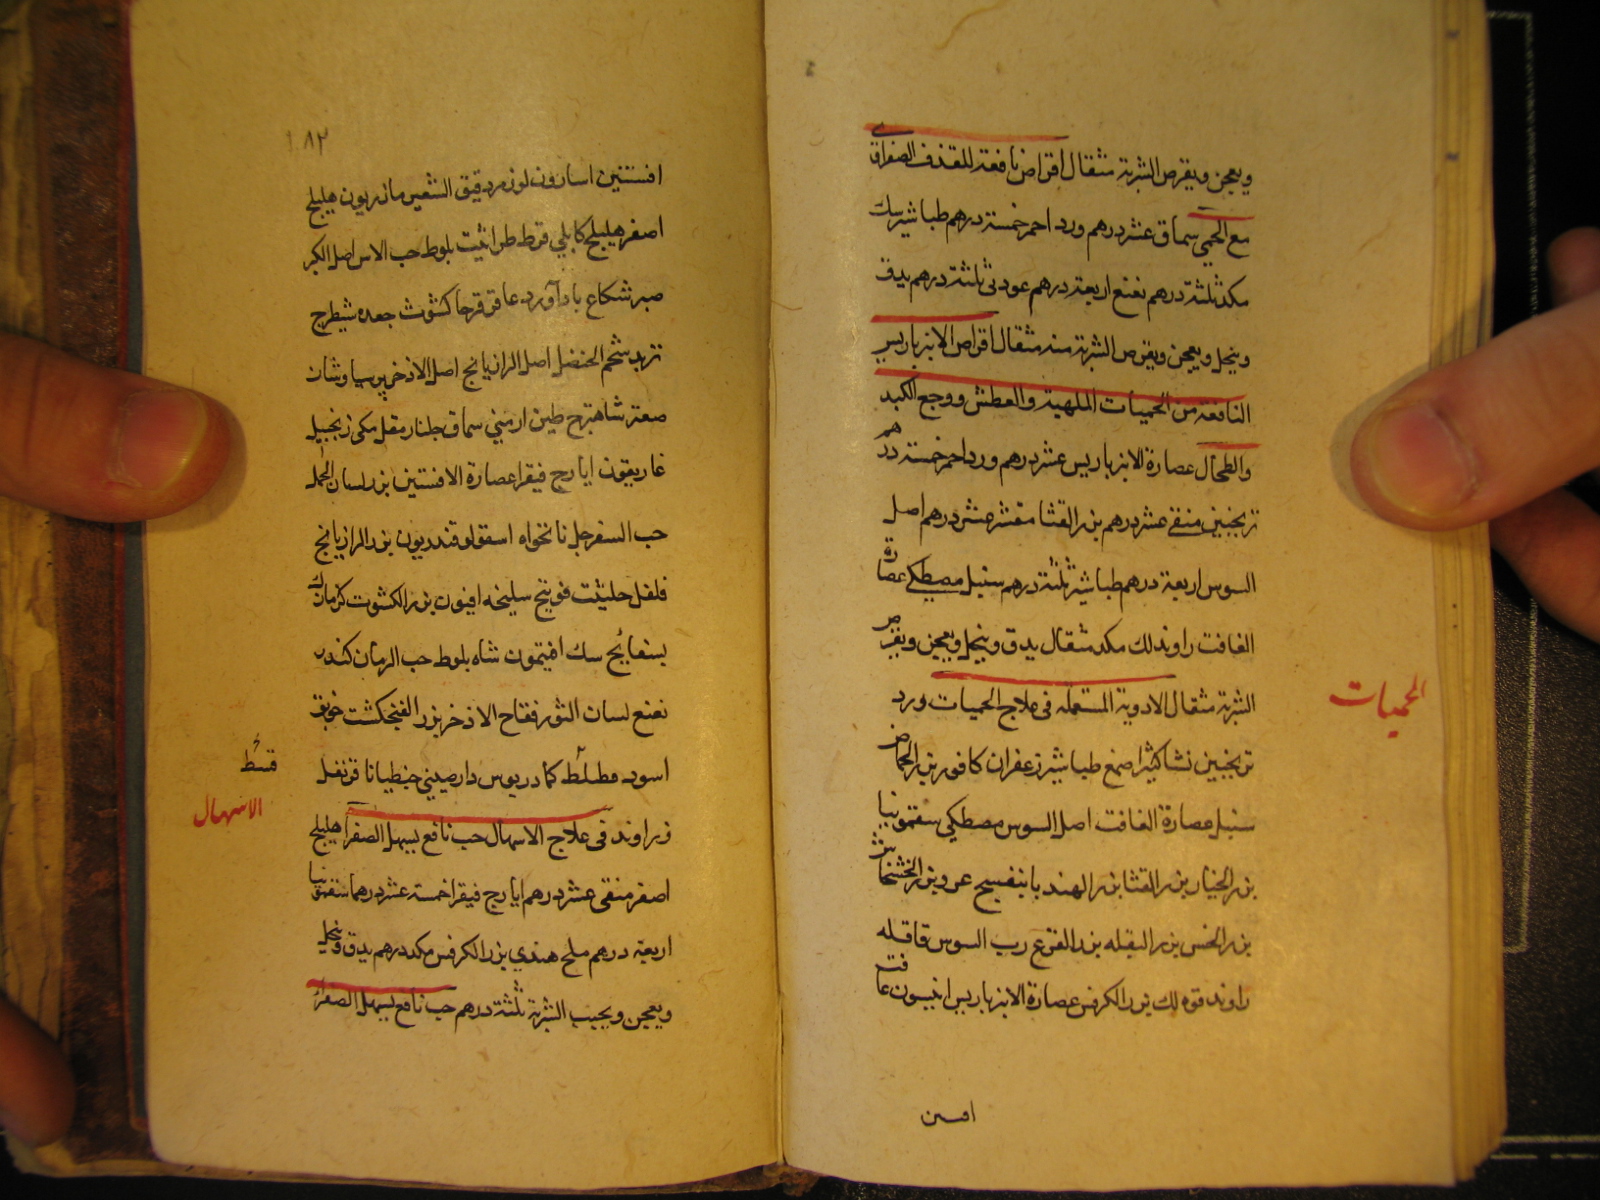 ويعجن ويقرص الشربة مثقال اقراص نافعة للقذف الصفراوي
مع الحمي سماق عشر درهم ورد احمر خمسة درهم طباشير سك
مكد ثلثة درهم نعنع اربعة درهم عود ني ثلثة درهم يدق
وينخل ويعجن ويقرص الشربة منه مثقال اقراص الانبرباريس
النافعة من الحميات الملهبة والعطش ووجع الكبد
والطحال عصارة الانبرباريس عشر درهم ورد احمر خمسة درهم
ترنجبين منقي عشر درهم بزر القثا مقشر عشر درهم اصل
السوس اربعة درهم طباشير ثلثة درهم سنبل مصطكي عصارة
الغافت راوند لك مكد مثقال يدق وينخل ويعجن ويقرص
الشربة مثقال الادوية المستعملة في علاج الحميات ورد
ترنجبين نشا كثيرا صمغ طباشير زعفران كافور بزر الحماض
سنبل عصارة الغافت اصل السوس مصطكي سقمونيا
بزر الخيار بزر القثا بزر الهندبا بنفسج عود بزر الخشخاش
بزر الخس بزر البقله بزر القرع رب السوس قاقله
راوند فوه لك بزر الكرفس عصارة الانبرباريس انيسون غافت
افسن
الحميات
١٨٢
افسنتين اسارون لوز مر دقيق الشعير مازريون هليلج
اصفر هليلج كابلي قرط طراثيث بلوط حب الاس اصل الكبر
صبر شكاع باداورد عاقرقرحا كشوث جعده شيطرج
تربد شحم الحنضل اصل الرازيانج اصل الاذخر پرسياوشان
صعتر شاهترج طين ارمني سماق جلنار مقل مكي زنجبيل
غاريقون ايارج فيقرا عصارة الافسنتين بزر لسان الحمل
حب السفرجل نانخواه اسقولوقندريون بزر الرازيانج
فلفل حلتيت فوتنج سليخه افيون بزر الكشوت كرمازك
بسفايج سك افتيمون شاه بلوط حب الرمان كندر
نعنع لسان الثور فقاح الاذخر بزر الفنجكشت خربق
اسود كمادريوس دارصيني جنطيانا قرنفل
زراوند في علاج الاسهال حب نافع يسهل الصفرا هليلج
اصفر منقى عشر درهم ايارج فيقرا خمسة عشر درهما سقمونيا
اربعة درهم ملح هندي بزر الكرفس مكد درهم يدق وينخل
ويعجن ويحبب الشربة ثلثة درهم حب نافع يسهل الصفرا
قسط
الاسهال